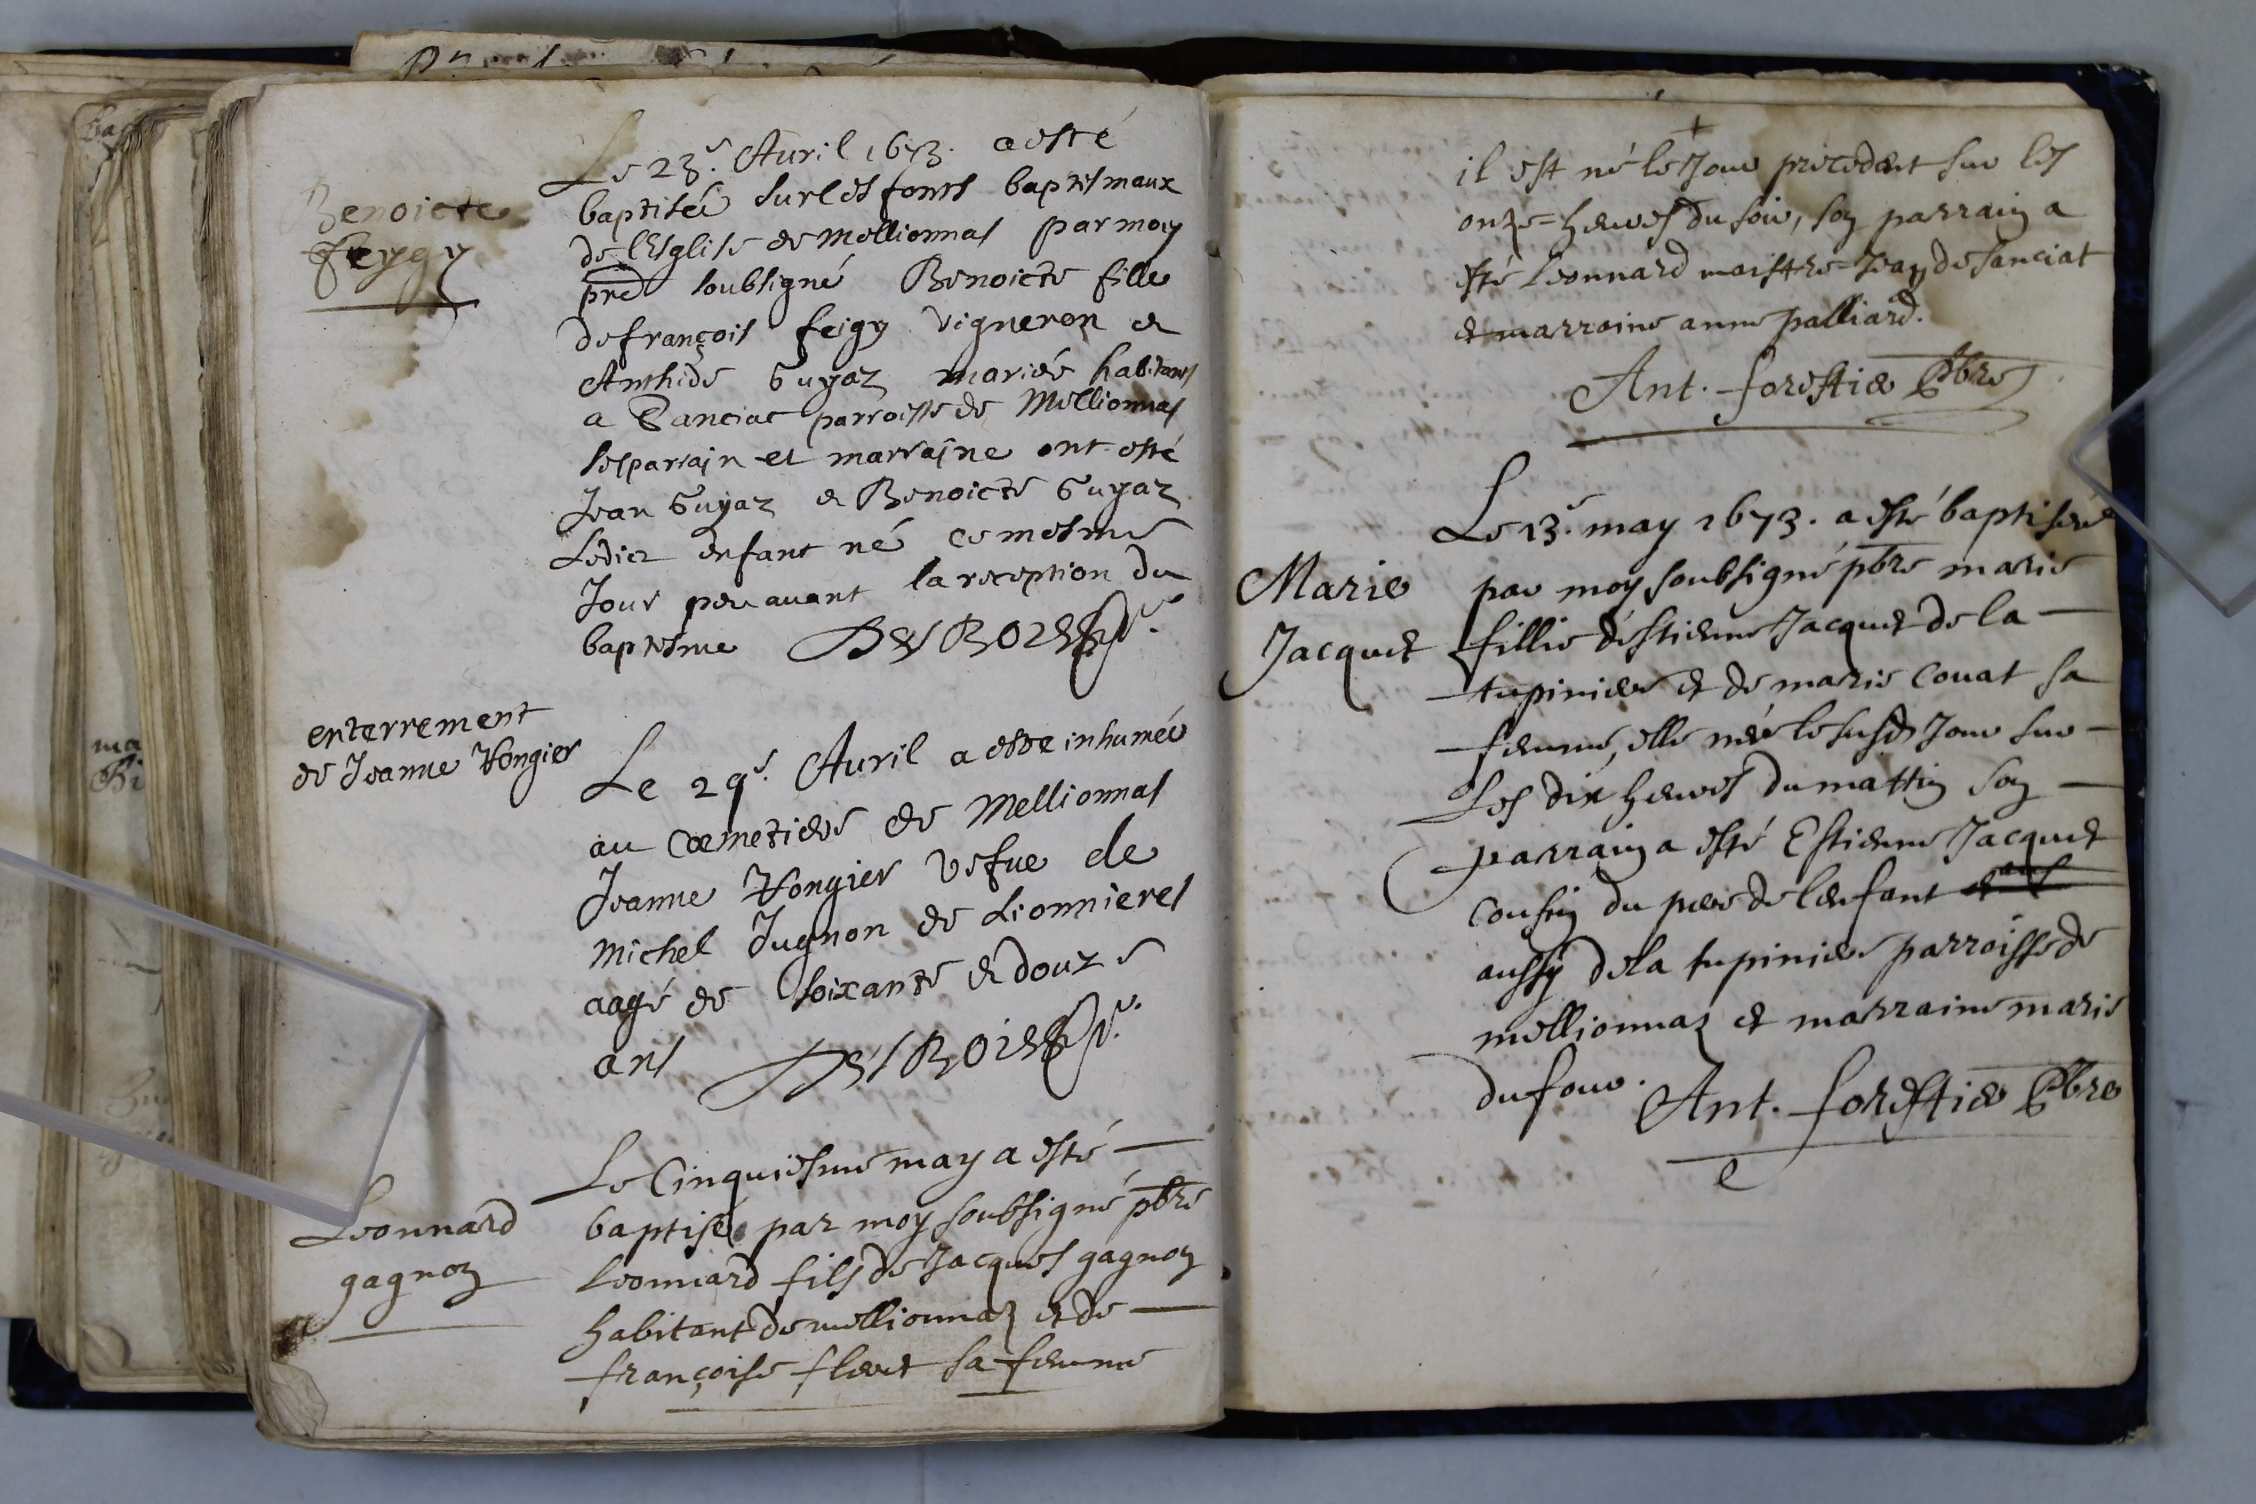 Benoicte
feygy
Le 23e. Auril 1673. a esté
baptiseé sur les fonts baptismaux
de l'Esglise de Mellionnas par moy
pnd soubsigné Benoicte fille
de françois feigy vigneron et
Anthide Guyaz mariés habitans
a Sanciac parroisse de Mellionnas
ses parrain et marraine ont esté
Jean Guyaz et Benoicte Guyaz
Ledict enfant né ce mesme
Jour peu auant la reception du
baptesme
enterrement
de Jeanne Vongier
Le 29e. Auril a esté inhumée
au Coemetiere de Mellionnas
Jeanne Vongier vefue de
Michel Jugnon de Lionnieres
aagé de soixante et douze
ans
Leonnard
gagnon
Le Cinquiesme may a esté
baptisé par moy soubsigné pbre
leonnard fils de Jacques gagnon
habitant de mellionnaz et de
françoise fleuret sa femme
il est né le Jour precedent sur les
onze=heures du soir, son parrain a
esté leonnard maistre=Jean de sanciat
et marraine anne palliard.
Ant. forestier Pbre
Marie
Jacquet
Le 13e. may 1673. a esté baptiseé
par moy soubsigné pbre marie
fillie d'estienne Jacquet de la
tupiniere et de marie Couat sa
femme, elle neé le susd Jour sur
Les dix heures du mattin son
parrain a esté Estienne Jacquet
cousin du pere de lenfant
aussy de la tupiniere parroisse de
mellionnaz et marraine marie
dufour.
Ant. forestier Pbre